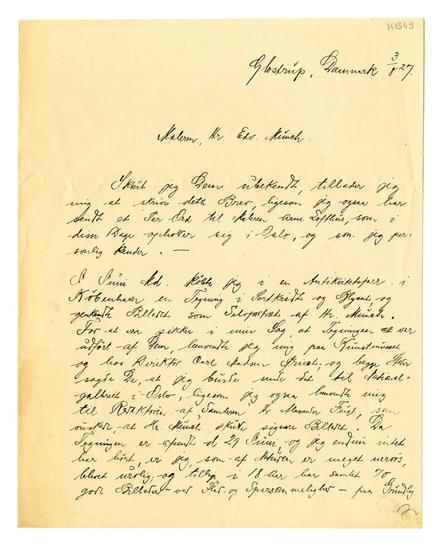 K1549
Glostrup, Danmark 3/8 27.
Maleren, Hr. Edv. Munch.
Skønt jeg Dem ubekendt, tillader jeg
mig at skrive dette Brev, ligesom jeg ogsaa har
sendt et Par Ord til Maleren Arne Lofthus, som i
disse Dage opholder sig i Oslo, og som jeg per-
sonlig kender. —
I Juni Md. købte jeg i en Antikvitetsforr. i
København en Tegning i Sortkridt og Blyant, og
genkendte Billedet som Selvportræt af Hr. Munch.
For at være sikker i min Sag, at Tegningen var
udført af Dem, henvendte jeg mig paa Kunstmuseet
og hos Direktør Carl Madsen, og begge Steder
sagde De, at jeg burde sende det til National-
galleriet i Oslo, ligesom jeg ogsaa henvendte mig
til Redaktøren af Samleren Hr. Feigh, som
ønskede, at Hr. Munch skulde signere Billedet. Da
Tegningen er afsendt d. 29 Juni, og jeg endnu intet
har hørt, er jeg, som af Naturen er meget nervøs,
blevet urolig, og tillige i 18 Aar har samlet 70
gode Billeder ved Flid og Sparsommelighed — paa